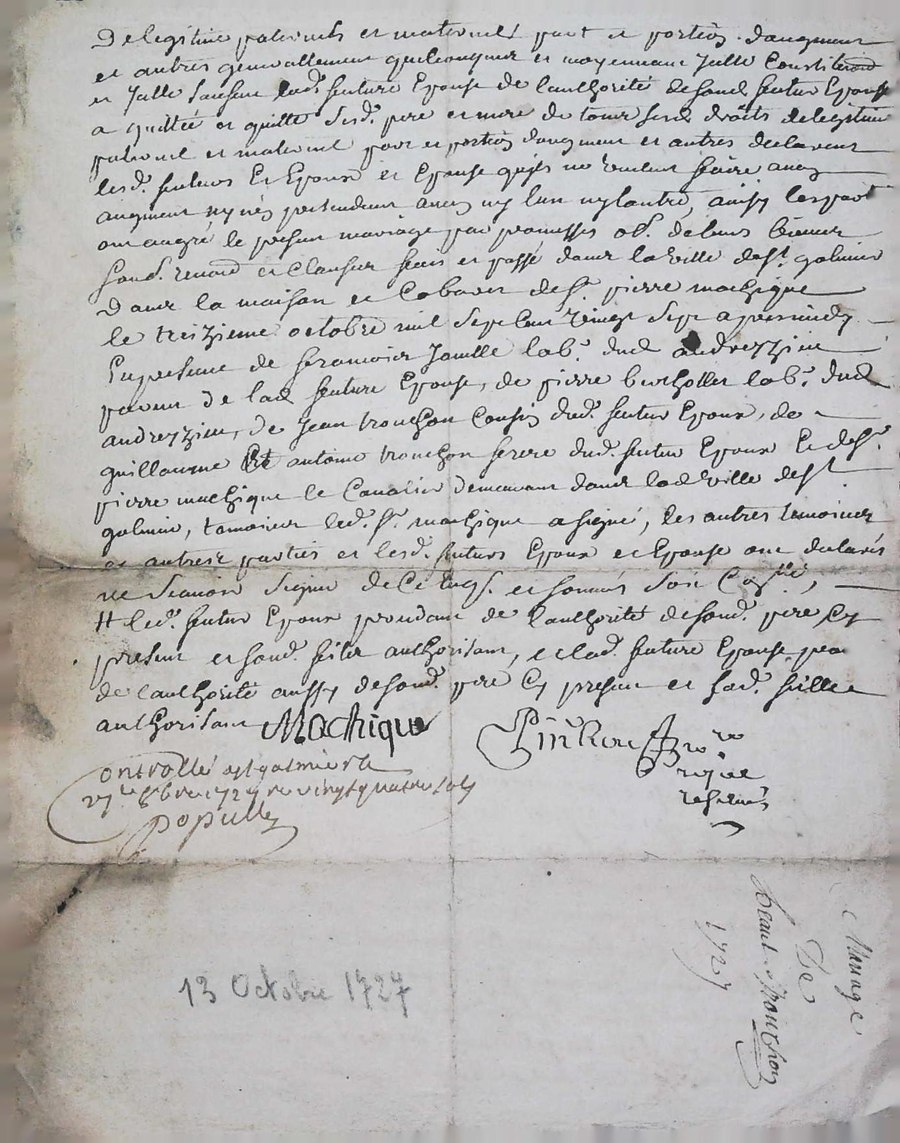 De legitime paternels et maternels part et portion daugment
et autres generallement quelconques et moyennant Jcelle Constitution
et Jcelle faisant lad. future Epouse de lauthorité desond. futur Epoux
a quitté et quitte sesd. pere et mere de tous ses droits de legitime
paternel et maternel part et portion daugment et autres declarent
lesd. futurs Epoux et Epouse quils ne veulent faire aucun
augment ny nen pretendent aucun ny lun ny lautre, ainsy les parties
ont aggré le present mariage par promesses ob. de leurs biens
soub. renon. et Clauses fait et passé dans la ville de st. galmier
Dans la maison et Cabaret de Sr. pierre machique
le treizieme octobre mil sept Cent vingt sept apres midy
En presence de Jamille lab. dud. andrezieu
parent de lad. future Epouse, de pierre lab. dud.
andrezieu, de Jean tronchon Cousin dud. futur Epoux, de
guillaume Et antoine tronchon frere dud. futur Epoux Et de Sr.
pierre machique le Cavalier demeurant dans lad. ville de st.
galmier, temoins led. Sr. machique a signé, les autres temoins
et autres parties et lesd. futurs Epoux et Epouse ont declarés
ne scavoir signer de Ce Enqs. et sommés
# led. futur Epoux procedant de lauthorité desond. pere Cy
present et sond. fils authorisant, et lad. future Epouse
de lauthorité aussy desond. pere Cy present et sad. fille
authorisant Machique
no. re
royal
reservé
Controllé a st galmier le
27 8bre 1727 vingt quatre sols
populle
13 Octobre 1727
Mariage
De
tronchon
1727